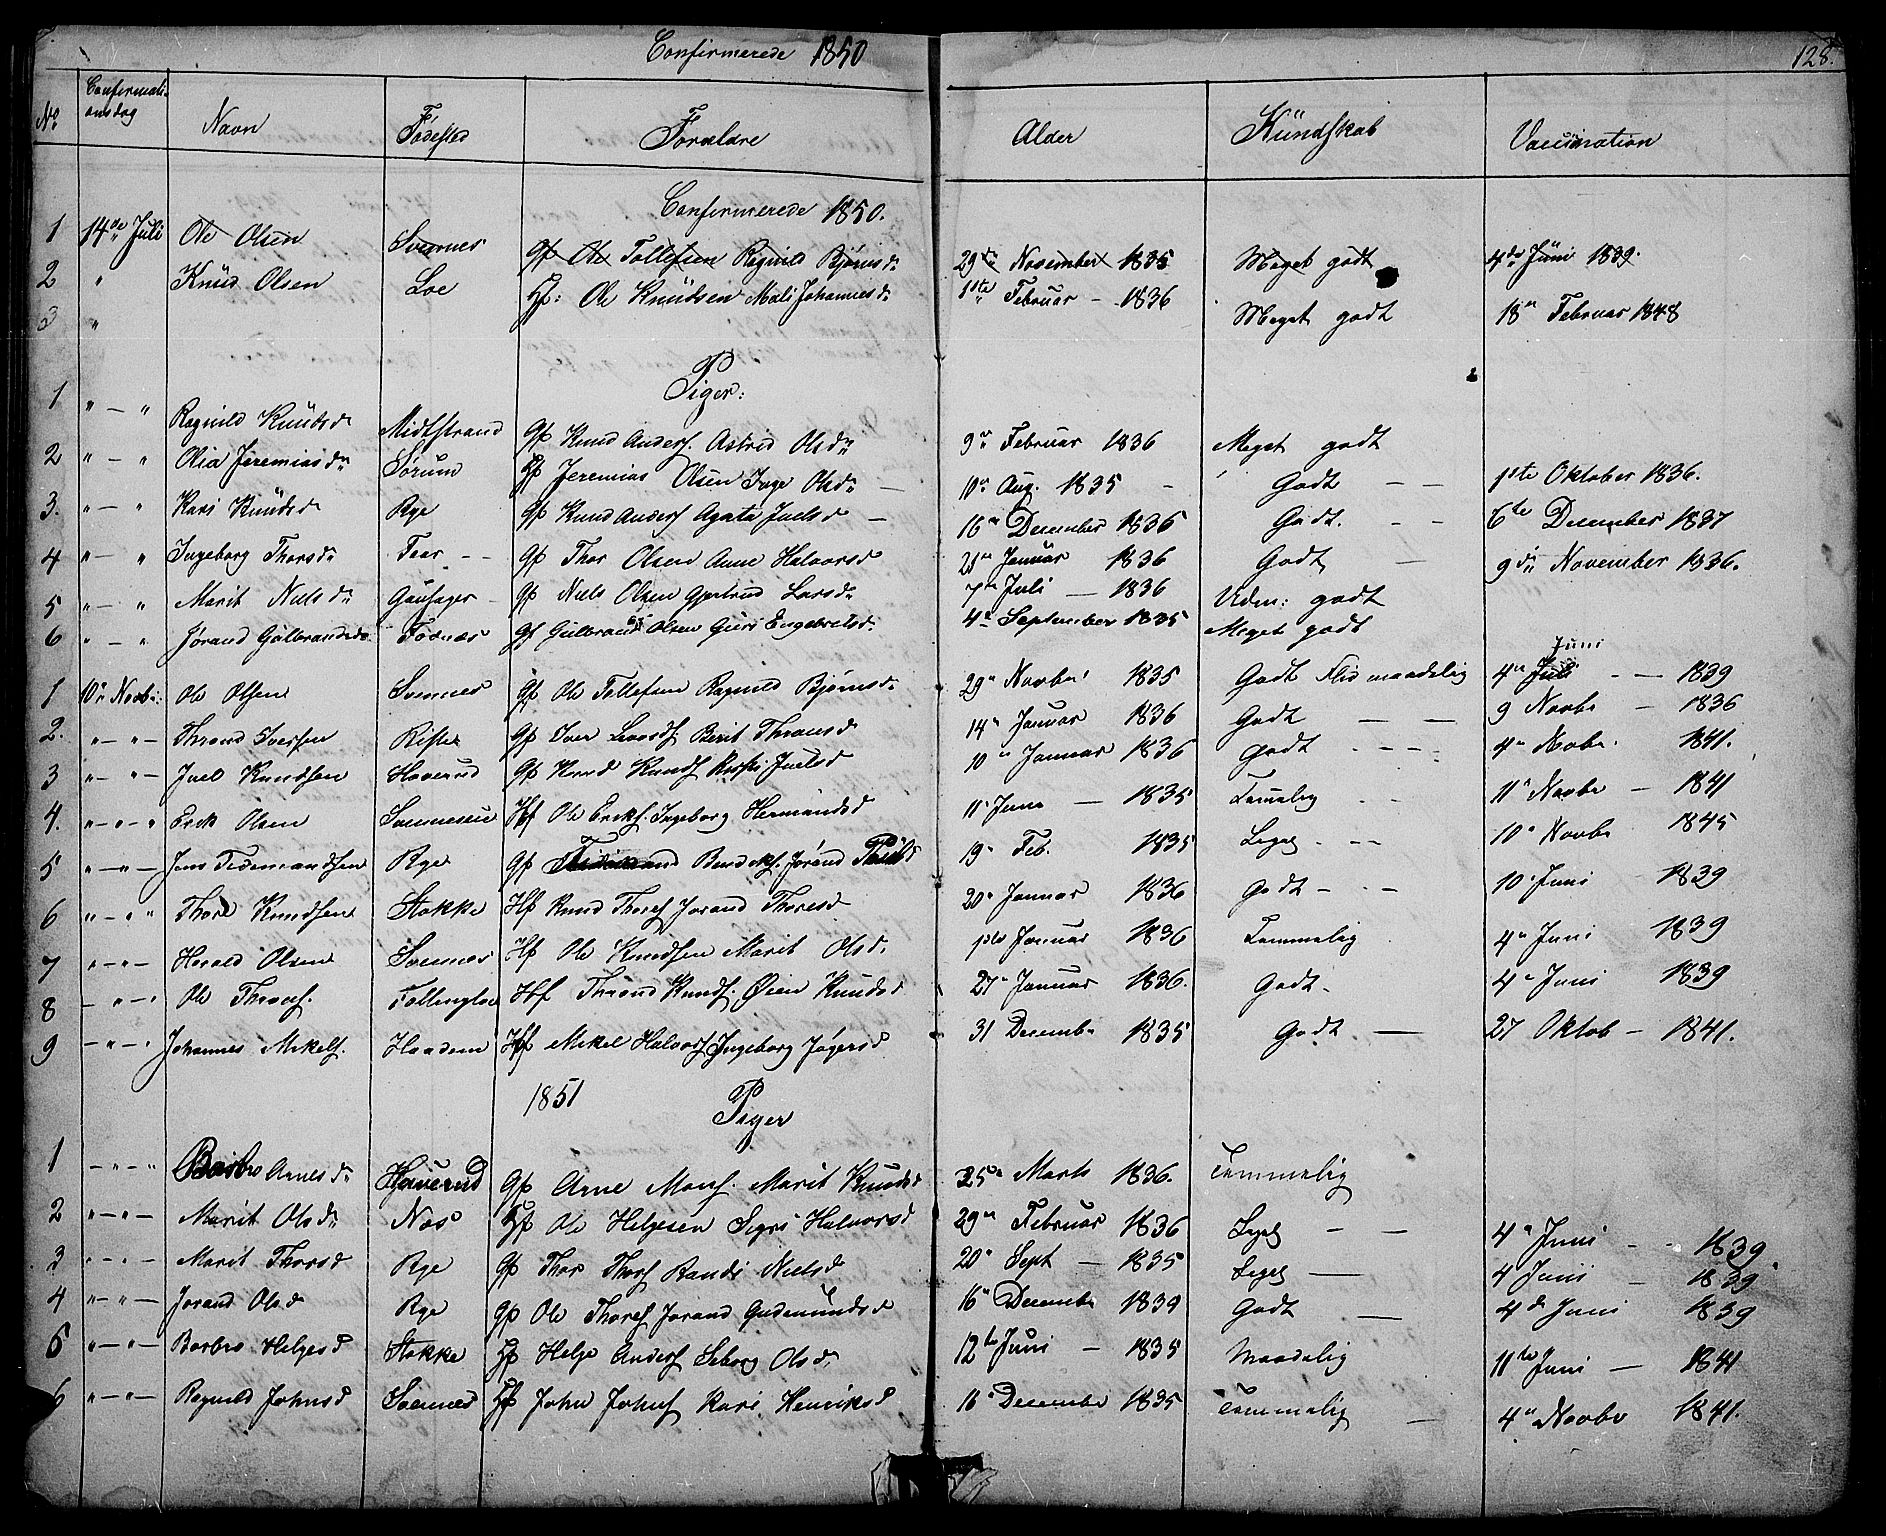 Confirmerede 1850
128.
No Confirmationsdag Navn Fødested Forældre Alder Kündskab Vaccination
Confirmerede 1850.
1 14de Juli Ole Olsen Svennes Gf Ole Tollefsen Ragnild Bjørnsdr 29de November 1835 Meget godt 4de Jüni 1839.
2 " Knüd Olsen Loe Hf: Ole Knüdsen Mali Johannesdr 1ste Februar - 1836 Meget godt 18de Februar 1848
3 "
Piger:
1 " — " Ragnild Knüdsd Midtstrand Gf Knud Anders. Astrid Olsdr 9de Februar 1836 Meget godt
2 " - " Olia Jeremiasdr Sørum Hf Jeremias Olsen Inge Olsdr — 10de Aug. 1835 - Godt — — 1ste Oktober 1836.
3. " - " Kari Knüdsd Rye Gf Knud Anders Agata Juelsd — 16de December 1835 Godt. — — 6te December 1837
4 " - " Ingeborg Thorsdr Gf Thor Olsen Anne Halvorsd 21de Januar 1836 Godt — 9de November 1836.
5 " — " Marit Nielsdr Gausager - Gf Niels Olsen Gjertrud Larsdr 7de Juli — 1836 Uden: godt
6 " - " Jørand Gulbrandsdr Fosnæs Gf Gulbrand Olsen Guri Engebretsdr 4de September 1835 Meget godt
Juni
1 10de Novbr: Ole Olsen Svennes Gf Ole Tollefsen Ragnild Bjørnsdr 29de Novbr 1835 Godt Flid maadelig 4de Juli — — 1839
2. " — " — Thrond Iversen Rifle Gf Iver Berit Thronsd 14de Januar 1836 Godt — — 9 Novbr — 1836
3 " — " — Juel Knudsen Haverud Gf Knud Knuds Juelsd 10de Januar 1836 godt - - - 4de Novbr. 1841.
4. " — " — " Erik Olsen Hf Ole Eriks. Ingeborg Hermandsd 11 Juni — 1835 Temelig - - 11de Novbr — 1841
5 " — " — Jens Tidemandsen Rye Gf Jørand 19de Feb. 1835 Liged. - - 10de Novbr 1845
6 " — " " Thore Knudsen Stokke Hf Knud Thores Jorand Thoresd 20de Januar 1836 Godt — - — 10de Juni 1839
7 " — " — Harald Olsen Svennes Hf Ole Knudsen Marit Olsd. 1ste Januar 1836 Temmelig 4de Juni 1839
8 — " — " Ole Throns. Hf Thrond Knuds. Øien Knudsd 27de Januar 1836. Godt. 4de Juni 1839
9 — " — " Johannes Mikels. Haadem Hf Mikel Halvors Ingeborg 31 Decembr 1835 Godt — 27 Oktob — 1841.
1851 Piger
1 — " — " Barbro Arnesdr Haverud Gf Arne Mons. Marit Knudsd 25de Marts 1836. Temmelig
2 " — " — Marit Olsdr Næs Hf Ole Helgesen Sigri Halvorsd 29de Februar 1836 Liged — — 4de Juni — - 1839
3 " — " — Marit Thorsd Rye Gf Thor Thors Randi Nielsd 20de Sept — 1835 Liged — 4 Juni — 1839
4 " — " — Jorand Olsd Rye Gf Ole Thores Jorand Gudmundsd 16de Decembr 1839 Godt — 4de Juni 1839
5 " — " — Barbro Helgesd Stokke Hf Helge Anders Seborg Olsdr 12te Juni — 1835 Maadelig 11te Juni — 1841
6 " — " — Ragnild Johnsd Svennes Hf John Johns Kari Henriksd 16de Decembr 1835 Temmelig — 4de Novbr 1841.